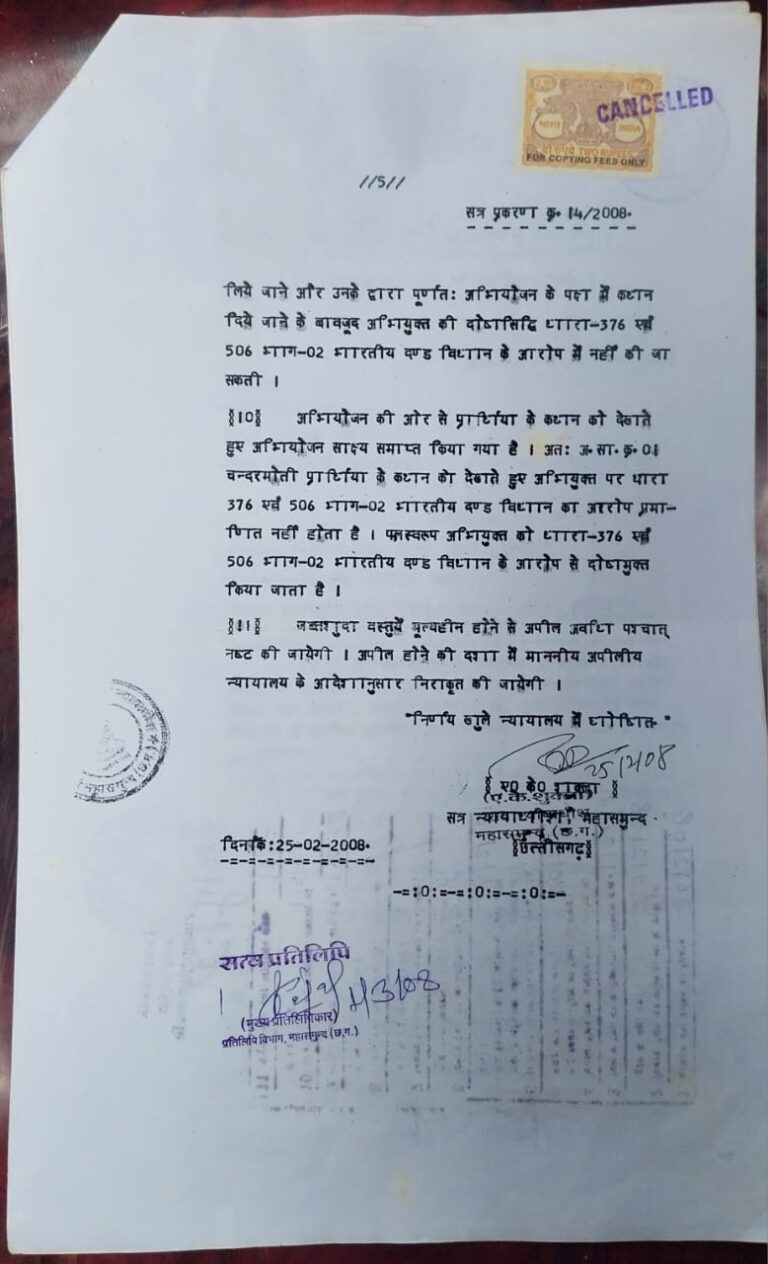 CANCELLED
भारत INDIA
दो रुपये TWO RUPEES
FOR COPYING FEES ONLY
//5//
सत्र प्रकरण क्र. 14/2008.
लिये जाने और उनके द्वारा पूर्णतः अभियोजन के पक्ष में कथन
दिये जाने के बावजूद अभियुक्त की दोषसिद्धि धारा-376 एवं
506 भाग-02 भारतीय दण्ड विधान के आरोप में नहीं की जा
सकती ।
§10§ अभियोजन की ओर से प्रार्थिया के कथन को देखते
हुए अभियोजन साक्ष्य समाप्त किया गया है । अतः अ.सा.क्र.01
चन्दरमोती प्रार्थिया के कथन को देखते हुए अभियुक्त पर धारा
376 एवं 506 भाग-02 भारतीय दण्ड विधान का आरोप प्रमा-
णित नहीं होता है । फलस्वरूप अभियुक्त को धारा-376 एवं
506 भाग-02 भारतीय दण्ड विधान के आरोप से दोषमुक्त
किया जाता है ।
§11§ जप्तशुदा वस्तुयें मूल्यहीन होने से अपील अवधि पश्चात्
नष्ट की जायेगी । अपील होने की दशा में माननीय अपीलीय
न्यायालय के आदेशानुसार निराकृत की जायेगी ।
"निर्णय खुले न्यायालय में घोषित."
25/2/08
§ ए0 के0 शुक्ला §
(ए.के.शुक्ला)
सत्र न्यायाधीश, महासमुन्द
महासमुन्द (छ.ग.)
§छत्तीसगढ़§
दिनांक:25-02-2008.
-=-=-=-=-=-=-=-=-
-=:0:=-=:0:=-=:0:=-
सत्य प्रतिलिपि
(मुख्य प्रतिलिपिकार)
प्रतिलिपि विभाग, महासमुन्द (छ.ग.)